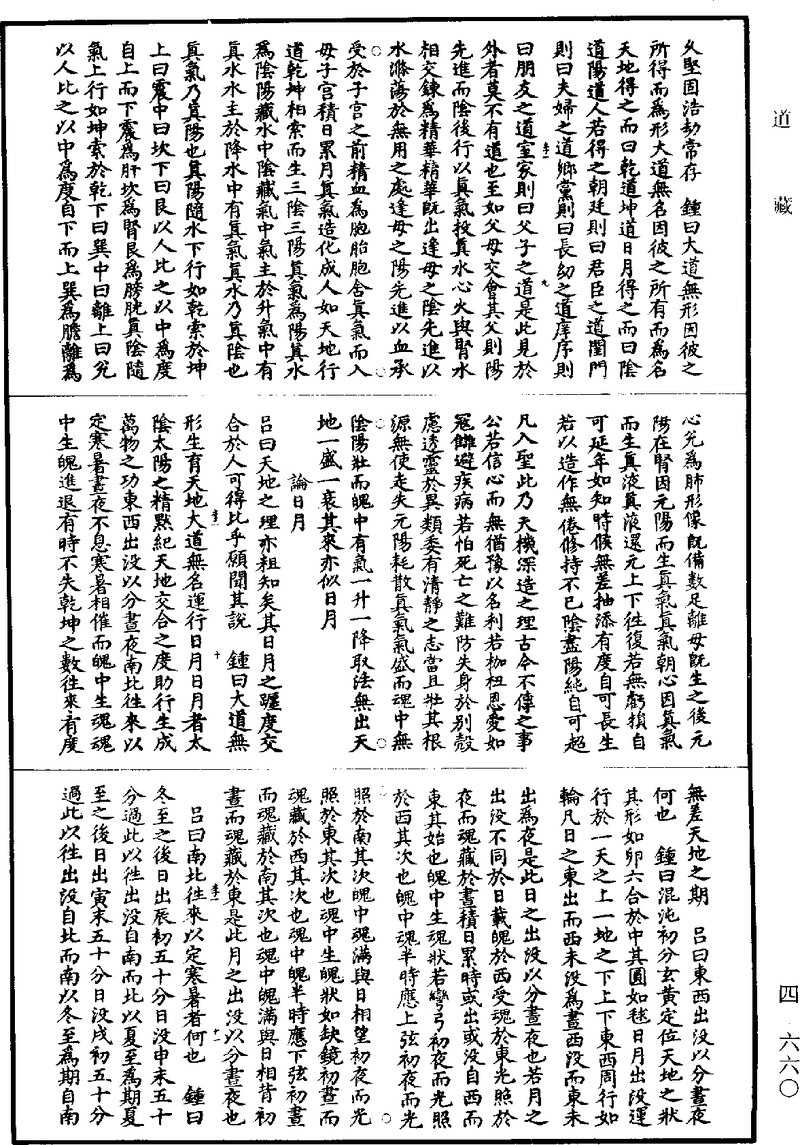 道藏
四·六六〇
久堅固浩劫常存　鍾曰大道無形因彼之
所得而為形大道無名因彼之所有而為名
天地得之而曰乾道坤道日月得之而曰陰
道陽道人若得之朝廷則曰君臣之道閨門
則曰夫婦之道鄉黨則曰長幼之道庠序則
曰朋友之道室家則曰父子之道是此見於
外者莫不有道也至如父母交會其父則陽
先進而陰後行以真氣投真水心火與腎水
相交鍊為精華精華既出逢母之陰先進以
水滌蕩於無用之處逢母之陽先進以血承
受於子宮之前精血為胞胎胞含真氣而入
母子宮積日累月真氣造化成人如天地行
道乾坤相索而生三陰三陽真氣為陽真水
為陰陽藏水中陰藏氣中氣主於升氣中有
真水水主於降水中有真氣真水乃真陰也
真氣乃真陽也真陽隨水下行如乾索於坤
上曰震中曰坎下曰艮以人比之以中為度
自上而下震為肝坎為腎艮為膀胱真陰隨
氣上行如坤索於乾下曰巽中曰離上曰兌
以人比之以中為度自下而上巽為膽離為
心兌為肺形像既備數足離母既生之後元
陽在腎因元陽而生真氣真氣朝心因真氣
而生真液真液還元上下往復若無虧損自
可延年如知時候無差抽添有度自可長生
若以造作無倦修持不已陰盡陽純自可超
凡入聖此乃天機深造之理古今不傳之事
公若信心而無猶豫以名利若枷杻恩愛如
寇讎避疾病若怕死亡之難防失身於別殼
慮透靈於異類委有清靜之志當且壯其根
源無使走失元陽耗散真氣氣盛而魂中無
陰陽壯而魄中有氣一升一降取法無出天
地一盛一衰其來亦似日月
論日月
呂曰天地之理亦粗知矣其日月之躔度交
合於人可得比乎願聞其說　鍾曰大道無
形生育天地大道無名運行日月日月者太
陰太陽之精默紀天地交合之度助行生成
萬物之功東西出沒以分晝夜南北往來以
定寒暑晝夜不息寒暑相催而魄中生魂魂
中生魄進退有時不失乾坤之數往來有度
無差天地之期　呂曰東西出沒以分晝夜
何也　鍾曰混沌初分玄黃定位天地之狀
其形如卵六合於中其圓如毬日月出沒運
行於一天之上一地之下上下東西周行如
輪凡日之東出而西未沒為晝西沒而東未
出為夜是此日之出沒以分晝夜也若月之
出沒不同於日載魄於西受魂於東光照於
夜而魂藏於晝積日累時或出或沒自西而
東其始也魄中生魂狀若彎弓初夜而光照
於西其次也魄中魂半時應上弦初夜而光
照於南其次魄中魂滿與日相望初夜而光
照於東其次也魂中生魄狀如缺鏡初晝而
魂藏於西其次也魂中魄半時應下弦初晝
而魂藏於南其次也魂中魄滿與日相背初
晝而魂藏於東是此月之出沒以分晝夜也
呂曰南北往來以定寒暑者何也　鍾曰
冬至之後日出辰初五十分日沒申末五十
分過此以往出沒自南而北以夏至為期夏
至之後日出寅末五十分日沒戌初五十分
過此以往出沒自北而南以冬至為期自南